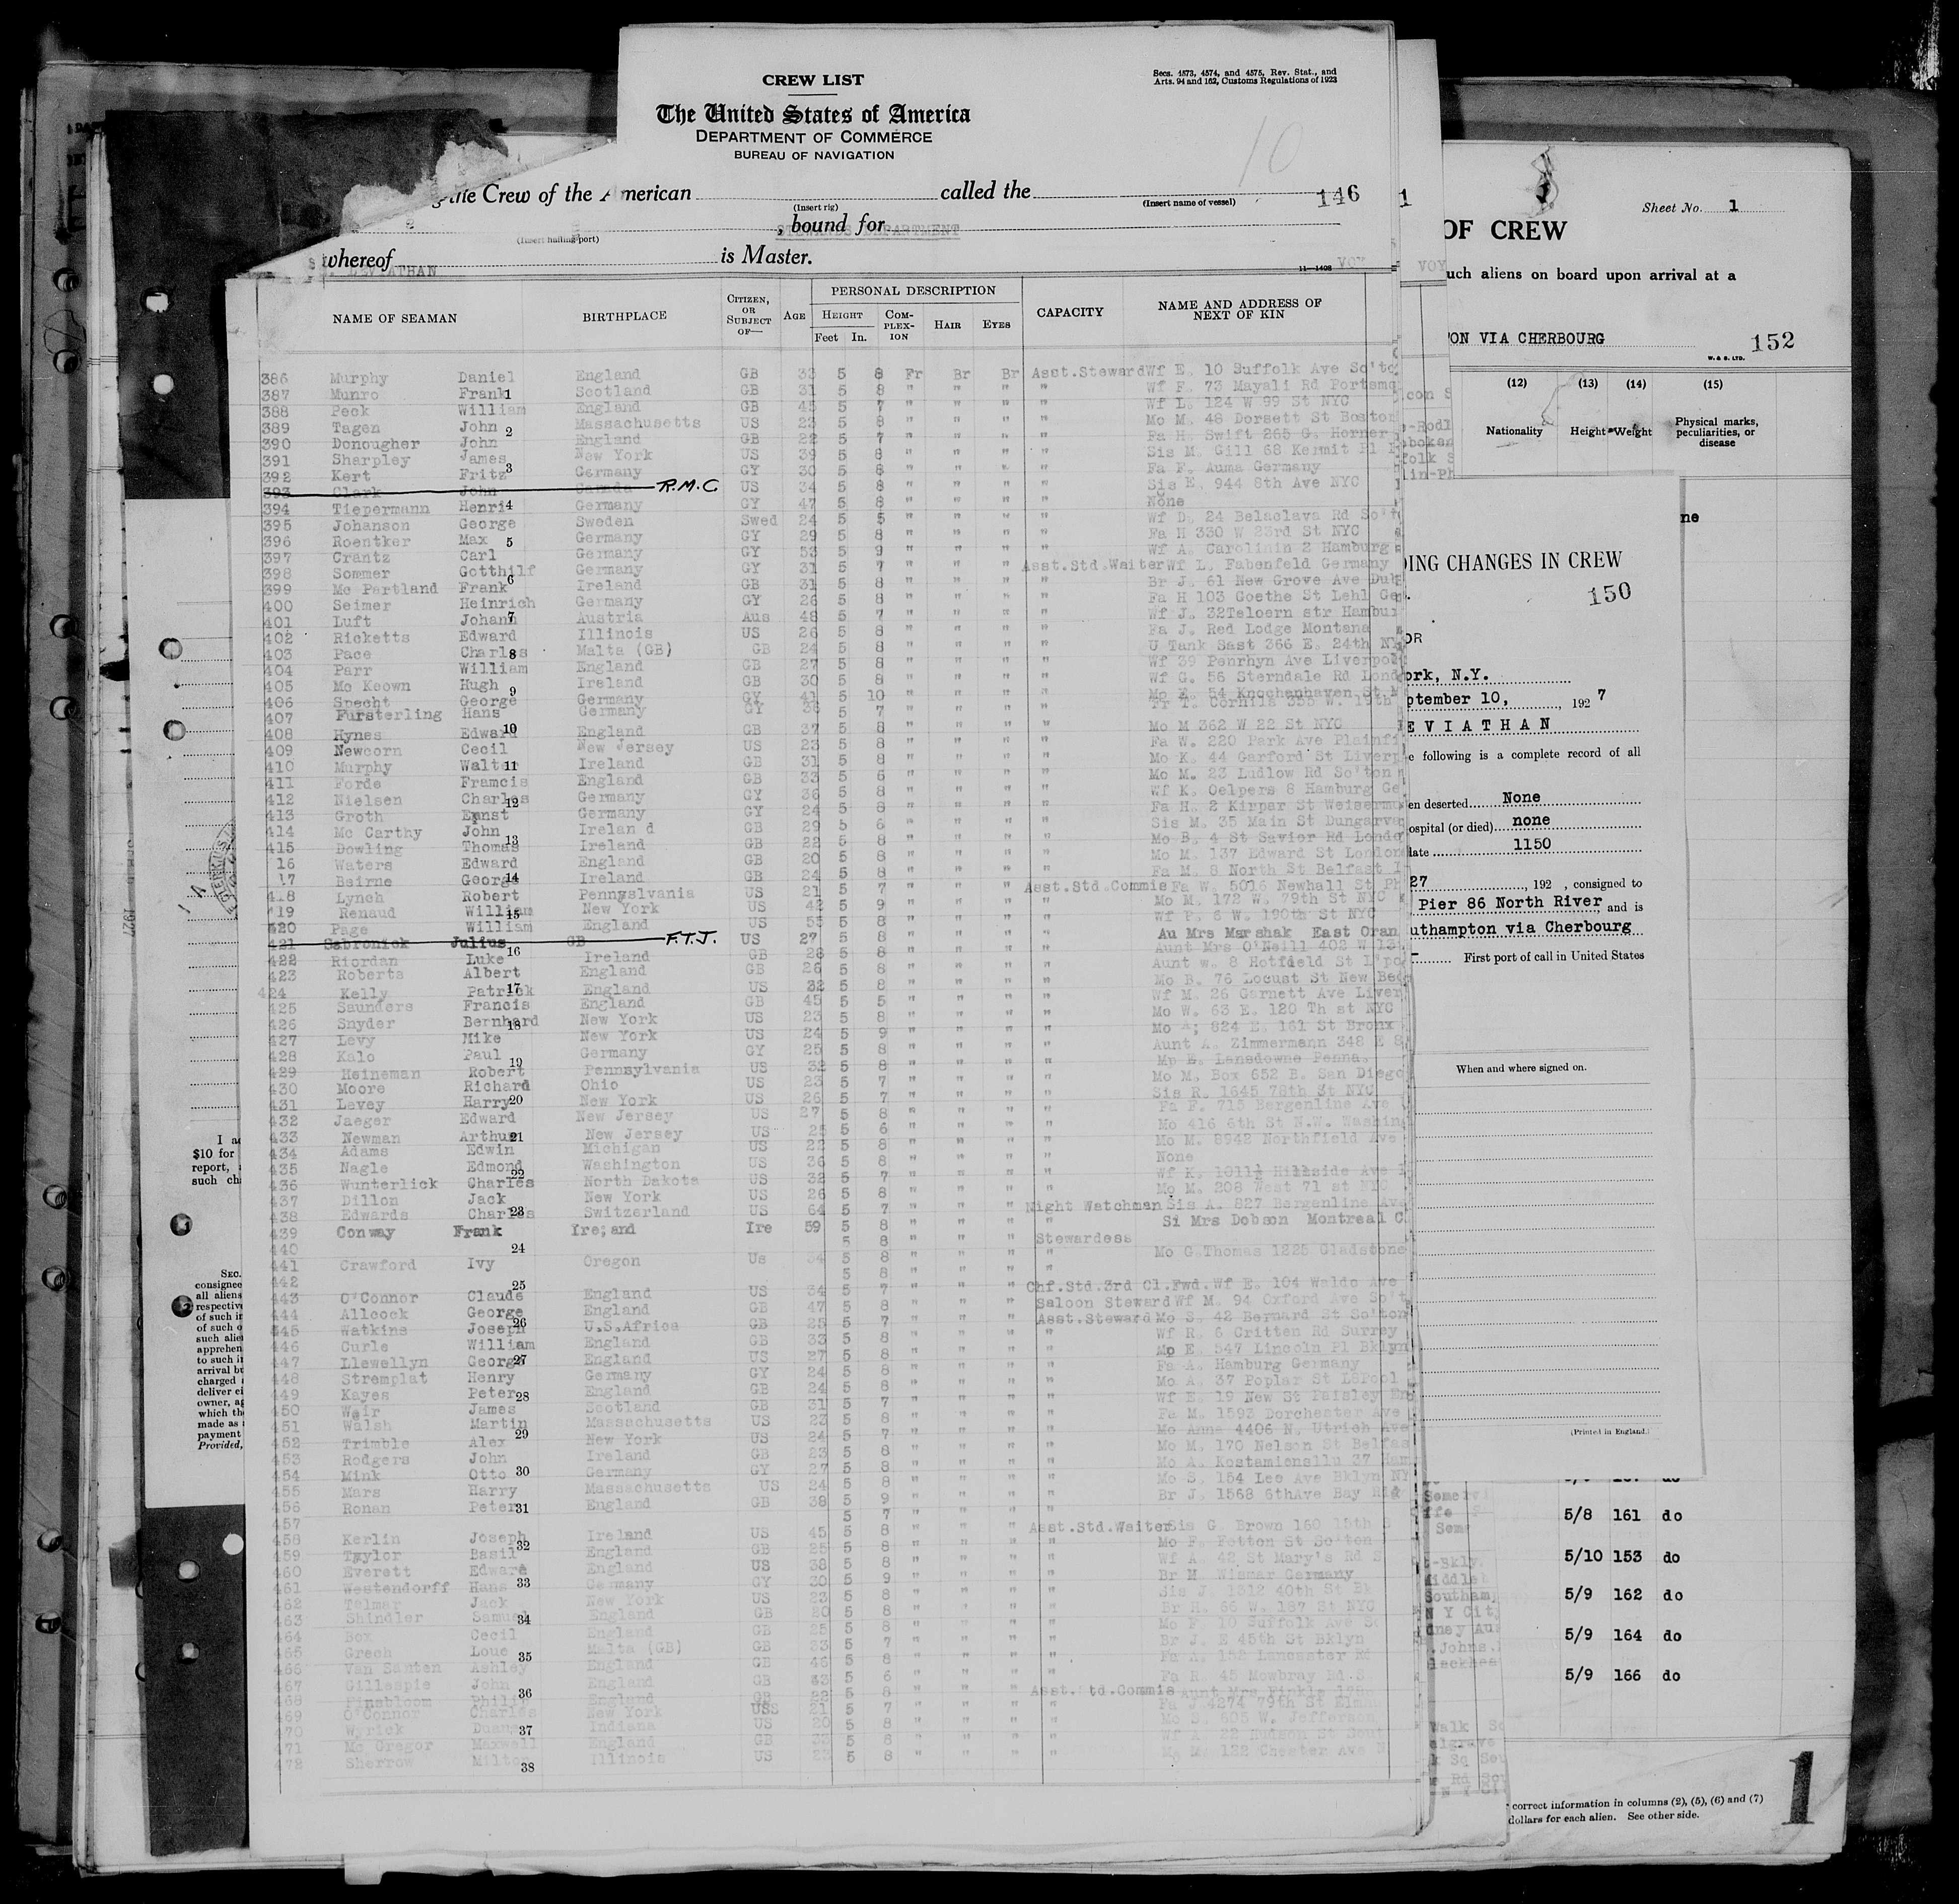 CREW LIST
Secs. 4573, 4574, and 4575, Rev. Stat., and
Arts. 94 and 162, Customs Regulations of 1923
The United States of America
DEPARTMENT OF COMMERCE
BUREAU OF NAVIGATION
10
the Crew of the American called the 146
(Insert rig) (Insert name of vessel)
, bound for
(Insert hailing port) DEPARTMENT
whereof is Master.
LEVIATHAN 11—1408 VOY
NAME OF SEAMAN BIRTHPLACE CITIZEN, OR SUBJECT OF— AGE PERSONAL DESCRIPTION CAPACITY NAME AND ADDRESS OF NEXT OF KIN
HEIGHT COMPLEXION HAIR EYES
Feet In.
386 Murphy Daniel England GB 33 5 8 Fr Br Br Asst.Steward Wf E. 10 Suffolk Ave So'to
387 Munro Frank 1 Scotland GB 31 5 8 " " " " Wf F. 73 Mayali Rd Portsmo
388 Peck William England GB 45 5 7 " " " " Wf L. 124 W 99 St NYC
389 Tagen John 2 Massachusetts US 23 5 8 " " " " Mo M. 48 Dorsett St Boston
390 Donougher John England GB 22 5 7 " " " " Fa H. Swift 265 G. Horner
391 Sharpley James New York US 39 5 8 " " " " Sis M. Gill 68 Kermit Pl
392 Kert Fritz 3 Germany GY 30 5 8 " " " " Fa F. Auma Germany
393 Clark John Canada R.M.C US 34 5 8 " " " " Sis E. 944 8th Ave NYC
394 Tiepermann Henri 4 Germany GY 47 5 8 " " " " None
395 Johanson George Sweden Swed 24 5 5 " " " " Wf D. 24 Belaclava Rd So't
396 Roentker Max 5 Germany GY 29 5 8 " " " " Fa H 330 W 23rd St NYC
397 Crantz Carl Germany GY 53 5 9 " " " " Wf A. Carolinin 2 Hamburg
398 Sommer Gotthilf Germany GY 31 5 7 " " " Asst.Std.Waiter Wf L. Fabenfeld Germany
399 Mc Partland Frank 6 Ireland GB 31 5 8 " " " " Br J. 61 New Grove Ave Dub
400 Seimer Heinrich Germany GY 26 5 8 " " " " Fa H 103 Goethe St Lehl Ge
401 Luft Johann 7 Austria Aus 48 5 7 " " " " Wf J. 32Teloern str Hambur
402 Ricketts Edward Illinois US 26 5 8 " " " " Fa J. Red Lodge Montana
403 Pace Charles 8 Malta (GB) GB 24 5 8 " " " " U Tank Sast 366 E. 24th NY
404 Parr William England GB 27 5 8 " " " " Wf 39 Penrhyn Ave Liverpol
405 Mc Keown Hugh 9 Ireland GB 30 5 8 " " " " Wf G. 56 Sterndale Rd Lond
406 Specht George Germany GY 41 5 10 " " " " Mo E. 54 Knochenhaven St
407 Fursterling Hans Germany GY 5 7 " " " " Cornils 355 W. 19th
408 Hynes Edward 10 England GB 37 5 8 " " " " Mo M 362 W 22 St NYC
409 Newcorn Cecil New Jersey US 23 5 8 " " " " Fa W. 220 Park Ave Plainfi
410 Murphy Walter 11 Ireland GB 31 5 8 " " " " Mo K. 44 Garford St Liverp
411 Forde Framcis England GB 33 5 6 " " " " Mo M. 23 Ludlow Rd So'ton
412 Nielsen Charles 12 Germany GY 36 5 8 " " " " Wf K. Oelpers 8 Hamburg Ge
413 Groth Ernst Germany GY 24 5 8 " " " " Fa H. 2 Kirper St Weiserm
414 Mc Carthy John Irelan d GB 29 5 6 " " " " Sis M. 35 Main St Dungarva
415 Dowling Thomas 13 Ireland GB 22 5 8 " " " " Mo B. 4 St Savior Rd Londo
16 Waters Edward England GB 20 5 8 " " " " Mo M. 137 Edward St London
17 Beirne George 14 Ireland GB 24 5 8 " " " " Fa M. 8 North St Belfast I
418 Lynch Robert Pennsylvania US 21 5 7 " " " Asst.Std.Commis Fa W. 5016 Newhall St Ph
419 Renaud William 15 New York US 42 5 9 " " " " Mo M. 172 W. 79th St NYC
420 Page William England US 55 5 8 " " " " Wf P. 6 W. 190th St NYC
421 Sebronick Julius GB F.T.J. US 27 5 8 " " " " Au Mrs Marshak East Oran
422 Riordan Luke 16 Ireland GB 28 5 8 " " " " Aunt Mrs O'Neill 402 W 13
423 Roberts Albert England GB 26 5 8 " " " " Aunt w. 8 Hotfield St L'po
424 Kelly Patrick 17 England US 32 5 8 " " " " Mo B. 76 Locust St New Bed
425 Saunders Francis England GB 45 5 5 " " " " Wf M. 26 Garnett Ave Liver
426 Snyder Bernhard 18 New York US 23 5 8 " " " " Mo W. 63 E. 120 Th st NYC
427 Levy Mike New York US 24 5 9 " " " " Mo A; 824 E. 161 St Bronx
428 Kalo Paul Germany GY 25 5 8 " " " " Aunt A. Zimmermann 348 E 8
429 Heineman Robert 19 Pennsylvania US 32 5 8 " " " " Mo E. Lansdowne Penna.
430 Moore Richard Ohio US 23 5 7 " " " " Mo M. Box 652 B. San Diego
431 Levey Harry 20 New York US 26 5 7 " " " " Sis R. 1645 78th St NYC
432 Jaeger Edward New Jersey US 27 5 8 " " " " Fa F. 715 Bergenline Ave
433 Newman Arthur 21 New Jersey US 25 5 6 " " " " Mo 416 6th St N.W. Washin
434 Adams Edwin Michigan US 22 5 8 " " " " Mo M. 8942 Northfield Ave
435 Nagle Edmond 22 Washington US 36 5 8 " " " " None
436 Wunterlick Charles North Dakota US 32 5 7 " " " " Wf K. 1011½ Hillside Ave
437 Dillon Jack New York US 26 5 8 " " " " Mo M. 208 West 71 st NYC
438 Edwards Charles 23 Switzerland US 64 5 7 " " " Night Watchman Sis A. 827 Bergenline Ave
439 Conway Frank Ire;and Ire 59 5 8 " " " " Si Mrs Dobson Montreal C
440 24 5 8 " " " Stewardess
441 Crawford Ivy Oregon Us 34 5 8 " " " " Mo G.Thomas 1225 Gladstone
442 25 5 8 " " " "
443 O'Connor Claude England US 34 5 7 " " " Chf.Std.3rd Cl.Fwd. Wf E. 104 Waldo Ave
444 Allcock George England GB 47 5 8 " " " Saloon Steward Wf M. 94 Oxford Ave So't
445 Watkins Joseph 26 U.S.Africa GB 25 5 7 " " " Asst.Steward Mo S. 42 Bernard St So'ton
446 Curle William England GB 33 5 8 " " " " Wf R. 6 Critten Rd Surrey
447 Llewellyn George 27 England US 27 5 8 " " " " Mo E. 547 Lincoln Pl Bklyn
448 Stremplat Henry Germany GY 24 5 8 " " " " Fa A. Hamburg Germany
449 Kayes Peter 28 England GB 24 5 8 " " " " Mo A. 37 Poplar St L8Pool
450 Weir James Scotland GB 31 5 7 " " " " Wf E. 19 New St Paisley
451 Walsh Martin Massachusetts US 23 5 8 " " " " Fa M. 1593 Dorchester Ave
452 Trimble Alex 29 New York US 24 5 7 " " " " Mo Anna 4406 N. Utrich Ave
453 Rodgers John Ireland GB 23 5 8 " " " " Mo M. 170 Nelson St Belfas
454 Mink Otto 30 Germany GY 27 5 8 " " " " Mo A. Kostamienllu 37 Ham
455 Mars Harry Massachusetts US 24 5 8 " " " " Mo S. 154 Lee Ave Bklyn NY
456 Ronan Peter 31 England GB 38 5 9 " " " " Br J. 1568 6thAve Bay Rid
457 5 7 " " "
458 Kerlin Joseph Ireland US 45 5 8 " " " Asst.Std.Waiter Sis G. Brown 160 15th S
459 Taylor Basil 32 England GB 25 5 8 " " " " Mo F. Fotton St So'ton
460 Everett Edward England US 38 5 8 " " " " Wf A. 42 St Mary's Rd S
461 Westendorff Hans 33 Germany GY 30 5 9 " " " " Br M. Wismar Germany
462 Telmar Jack New York US 23 5 8 " " " " Sis J. 1312 40th St Bk
463 Shindler Samuel 34 England GB 20 5 8 " " " " Br H. 66 W. 187 St NYC
464 Box Cecil England GB 25 5 8 " " " " Mo F. 10 Suffolk Ave So
465 Grech Loue 35 Malta (GB) GB 33 5 7 " " " " Br J. E 45th St Bklyn
466 Van Santen Ashley England GB 46 5 8 " " " " Fa A. 152 Lancaster Rd
467 Gillespie John England GB 33 5 6 " " " " Fa R. 45 Mowbray Rd.S.
468 Finebloom Philip 36 England GB 22 5 8 " " " Asst.Std.Commis Aunt Mrs
469 O'Connor Charles New York USS 21 5 7 " " " " Fa J. 4274 79th St Elm
470 Wyrick Duane 37 Indiana US 20 5 8 " " " " Mo S. 605 W. Jefferson
471 Mc Gregor Maxwell England GB 33 5 6 " " " " Wf A. 22 Hudson St Sout
472 Sherrow Milton 38 Illinois US 23 5 8 " " " " Mo M. 132 Chester Ave N
1
VOY
OF CREW
Sheet No. 1
uch aliens on board upon arrival at a
ON VIA CHERBOURG 152
W. & S. LTD.
(12) (13) (14) (15)
Nationality Height Weight Physical marks, peculiarities, or disease
ne
DING CHANGES IN CREW
150
OR
ork, N.Y.
ptember 10, , 192 7
EVIATHAN
e following is a complete record of all
en deserted None
ospital (or died) none
late 1150
27 , 192 , consigned to
Pier 86 North River, and is
uthampton via Cherbourg
First port of call in United States
When and where signed on.
(Printed in England.)
5/8 161 do
5/10 153 do
5/9 162 do
5/9 164 do
5/9 166 do
correct information in columns (2), (5), (6) and (7)
dollars for each alien. See other side.
1
I a
$10 for
report,
such ch
SEC.
consignee
all aliens
respective
of such i
of such o
such alie
apprehen
to such i
arrival b
charged
deliver ci
owner, ag
which th
made as
payment
Provided,
1927